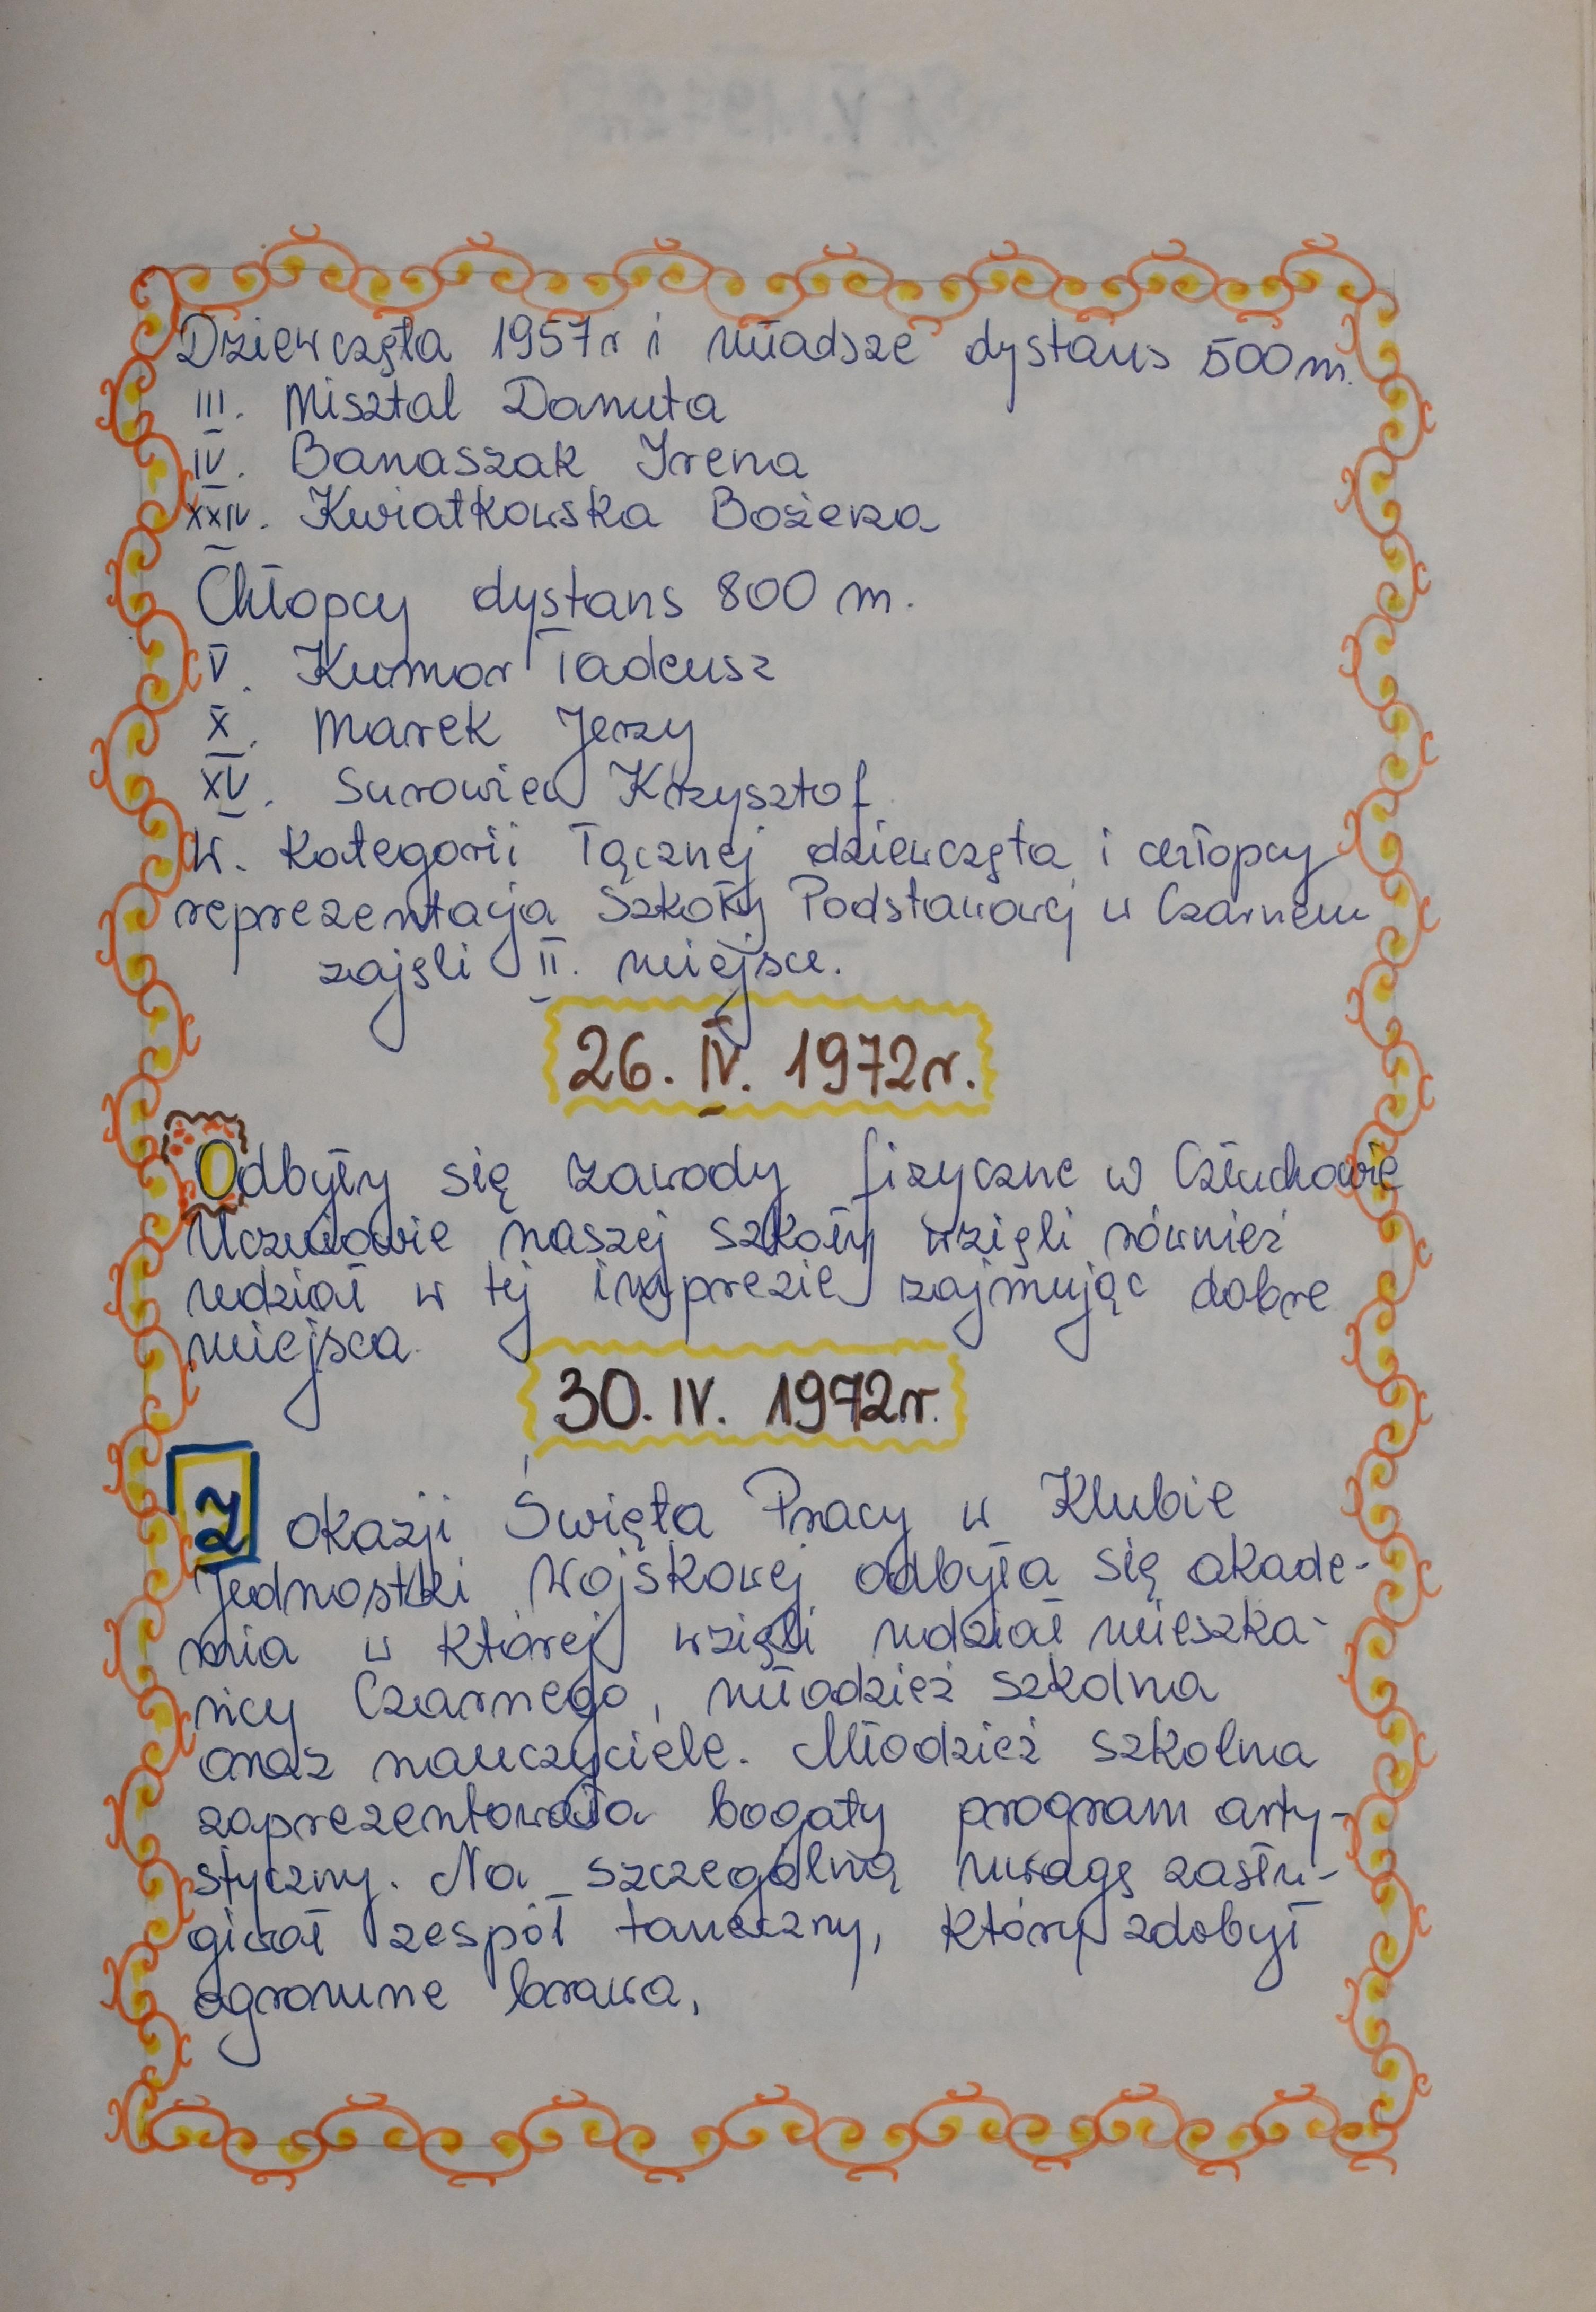 Dziewczęta 1957r i młodsze dystans 500m.
III. Misztal Danuta
IV. Banaszak Irena
XXIV. Kwiatkowska Bożena
Chłopcy dystans 800 m.
V. Kumor Tadeusz
X. Marek Jerzy
XV. Surowiec Krzysztof
W. Kategorii łącznej dziewczęta i chłopcy
reprezentacja Szkoły Podstawowej w Czarnem
zajęli II. miejsce.
26. IV. 1972r.
Odbyły się zawody fizyczne w Człuchowie
Uczniowie naszej szkoły wzięli również
udział w tej imprezie zajmując dobre
miejsca.
30. IV. 1972r.
Z okazji Święta Pracy w Klubie
Jednostki Wojskowej odbyła się akade-
mia w której wzięli udział mieszka-
ńcy Czarnego, młodzież szkolna
oraz nauczyciele. Młodzież szkolna
zaprezentowała bogaty program arty-
styczny. Na szczególną uwagę zasłu-
giwał zespół taneczny, który zdobył
ogromne brawa,